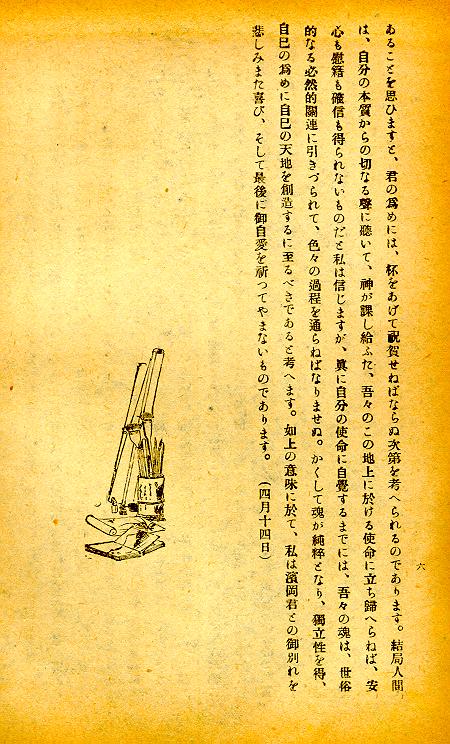 あることを思ひますと、君の爲めには、杯をあげて祝賀せねばならぬ次第を考へられるのであります。結局人間
は、自分の本質からの切なる聲に聽いて、神が課し給ふた、吾々のこの地上に於ける使命に立ち歸へらねば、安
心も慰藉も確信も得られないものだと私は信じますが、眞に自分の使命に自覺するまでには、吾々の魂は、世俗
的なる必然的關連に引きづられて、色々の過程を通らねばなりませぬ。かくして魂が純粹となり、獨立性を得、
自己の爲めに自己の天地を創造するに至るべきであると考へます。如上の意味に於て、私は濱岡君との御別れを
悲しみまた喜び、そして最後に御自愛を祈つてやまないものであります。　（四月十四日）
六